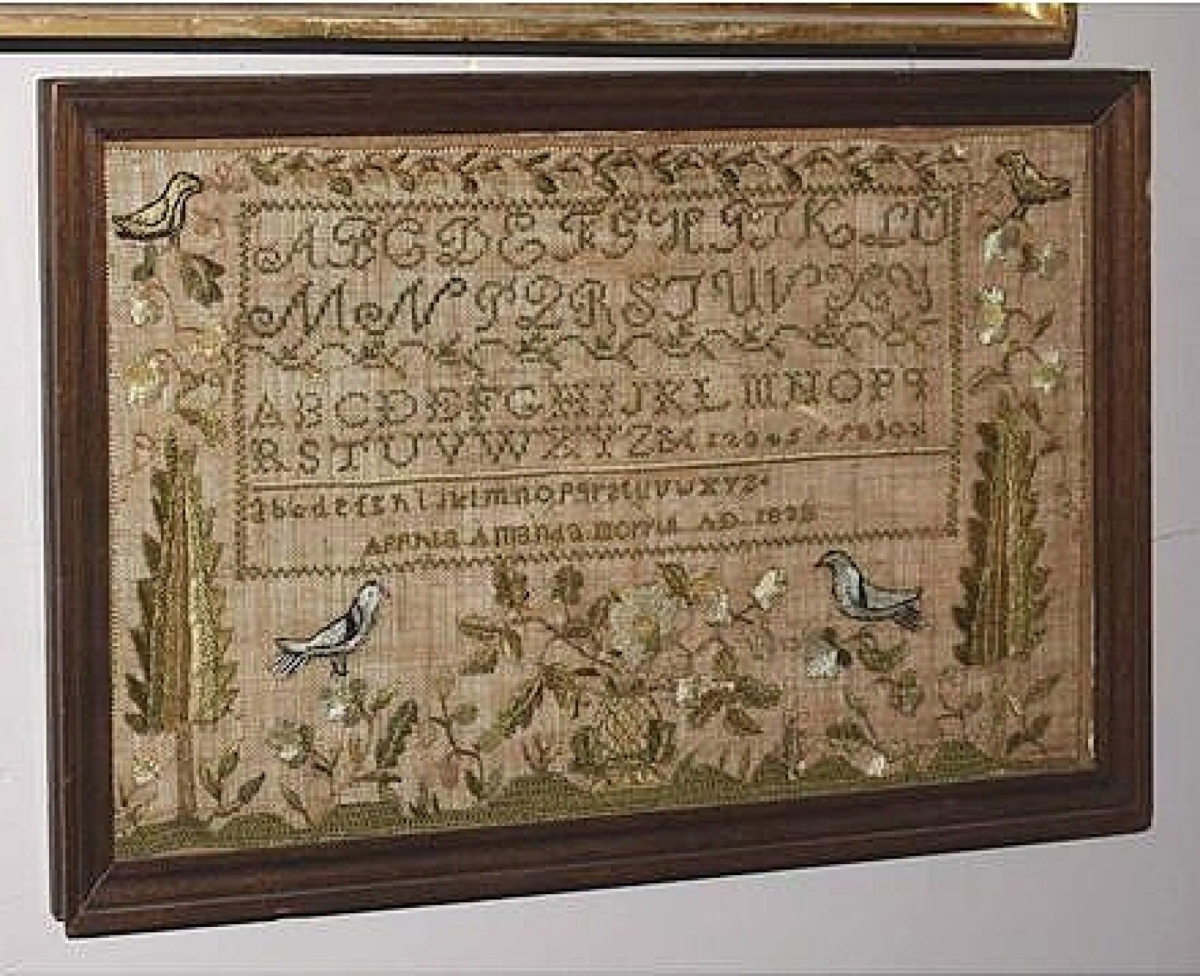 A B C D E F G H I J K L O
M N P Q R S T U V X Y
A B C D E F G H I J K L M N O P Q
R S T U V W X Y Z & 1 2 3 4 5 6 7 8
a b c d e f g h i j k l m n o p q r s t u v w x y z
Amanda morris AD